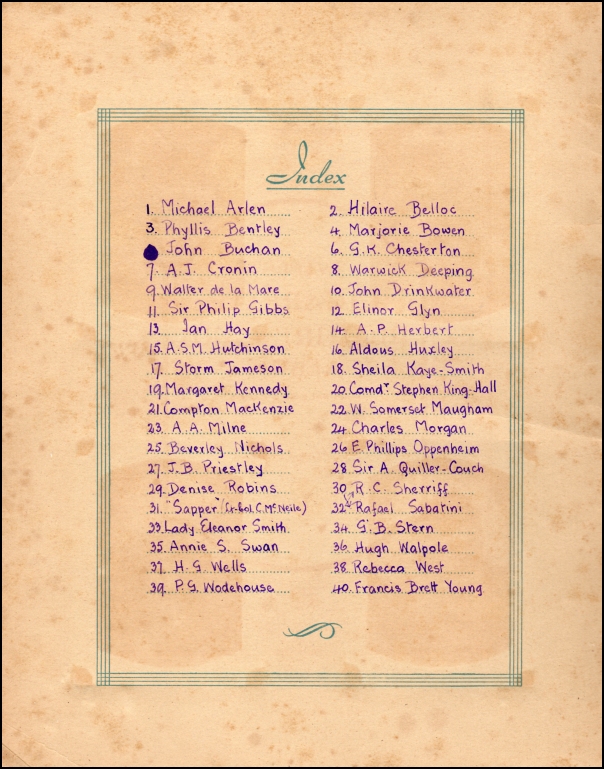 Index
1. Michael Arlen 2. Hilaire Belloc
3. Phyllis Bentley 4. Marjorie Bowen
John Buchan 6. G.K. Chesterton
7. A.J. Cronin 8. Warwick Deeping
9. Walter de la Mare 10. John Drinkwater
11. Sir Philip Gibbs 12. Elinor Glyn
13. Ian Hay 14. A.P. Herbert
15. A.S.M. Hutchinson 16. Aldous Huxley
17. Storm Jameson 18. Sheila Kaye-Smith
19. Margaret Kennedy 20. Comdr Stephen King-Hall
21. Compton MacKenzie 22. W. Somerset Maugham
23. A.A. Milne 24. Charles Morgan
25. Beverley Nichols 26. E. Phillips Oppenheim
27. J.B. Priestley 28. Sir A. Quiller-Couch
29. Denise Robins 30. R.C. Sherriff
31. "Sapper" (Lt-Col. C. McNeile) 32. Rafael Sabatini
33. Lady Eleanor Smith 34. G.B. Stern
35. Annie S. Swan 36. Hugh Walpole
37. H.G. Wells 38. Rebecca West
39. P.G. Wodehouse 40. Francis Brett Young